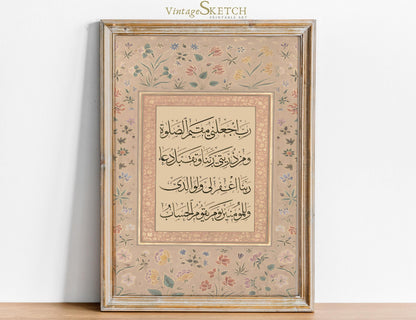 VintageSKETCH
PRINTABLE ART
رب اجعلنى مقيم الصلوة
ومن ذريتى ربنا وتقبل دعاء
ربنا اغفر لى ولوالدى
وللمؤمنين يوم يقوم الحساب